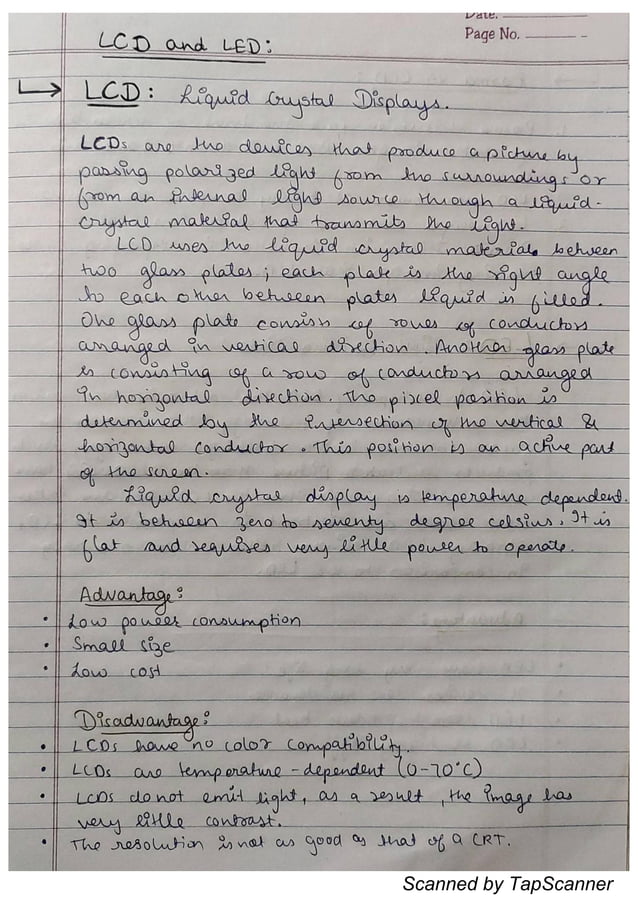 Date.
Page No.
LCD and LED:
LCD: Liquid Crystal Displays.
LCDs are the devices that produce a picture by
passing polarized light from the surroundings or
from an internal light source through a liquid-
crystal material that transmits the light.
LCD uses the liquid crystal material between
two glass plates; each plate is the right angle
to each other between plates liquid is filled.
One glass plate consists of rows of conductors
arranged in vertical direction. Another glass plate
is consisting of a row of conductors arranged
in horizontal direction. The pixel position is
determined by the intersection of the vertical &
horizontal conductor. This position is an active part
of the screen.
Liquid crystal display is temperature dependent.
It is between zero to seventy degree celsius. It is
flat and requires very little power to operate.
Advantage:
• Low power consumption
• Small size
• Low cost
Disadvantage:
• LCDs have no color compatibility.
• LCDs are temperature-dependent (0-70°C)
• LCDs do not emit light, as a result, the image has
very little contrast.
• The resolution is not as good as that of a CRT.
Scanned by TapScanner